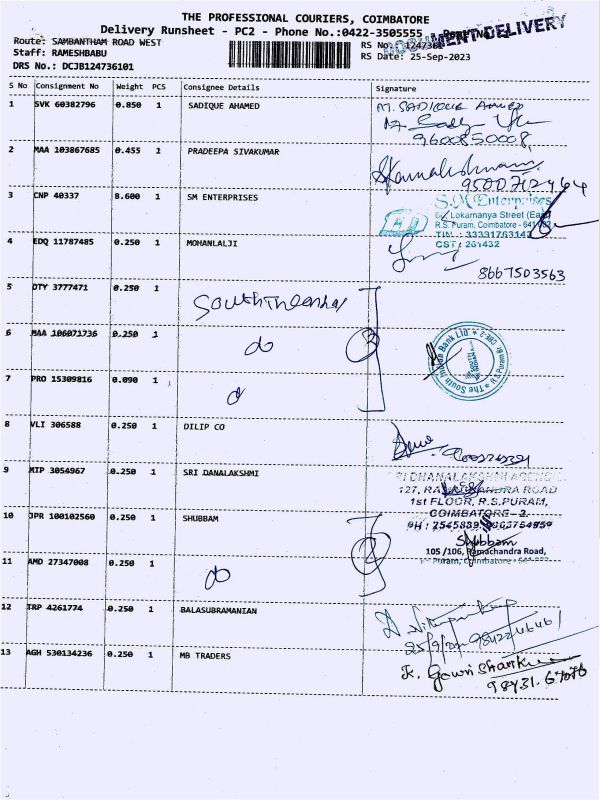 THE PROFESSIONAL COURIERS, COIMBATORE
Delivery Runsheet - PC2 - Phone No.:0422-3505555
DOCUMENT DELIVERY
Route: SAMBANTHAM ROAD WEST
RS No.: 1247361
Staff: RAMESHBABU
RS Date: 25-Sep-2023
DRS No.: DCJB124736101
S No Consignment No Weight PCS Consignee Details Signature
1 SVK 60382796 0.850 1 SADIQUE AHAMED M. SADIQUE AHMED
9600850008
2 MAA 103867685 0.455 1 PRADEEPA SIVAKUMAR
9500712464
3 CNP 40337 8.600 1 SM ENTERPRISES S.M Enterprises
Lokamanya Street (East)
R.S. Puram, Coimbatore - 641
TIN : 33331763142
CST : 261432
4 EDQ 11787485 0.250 1 MOHANLALJI
8667503563
5 DTY 3777471 0.250 1
6 MAA 106071736 0.250 1 do The South Indian Bank Ltd R.S. Puram
7 PRO 15309816 0.090 1
8 VLI 306588 0.250 1 DILIP CO
9 MIP 3054967 0.250 1 SRI DANALAKSHMI SRI DHANALAKSHMI AGENCIES
127, RAMACHANDRA ROAD
1st FLOOR, R.S.PURAM,
COIMBATORE - 2.
10 JPR 100102560 0.250 1 SHUBBAM
Shubbam
105 /106, Ramachandra Road,
Puram, Coimbatore
11 AMD 27347008 0.250 1 do
12 TRP 4261774 0.250 1 BALASUBRAMANIAN
13 AGH 530134236 0.250 1 MB TRADERS K. Gowri Shankar
98431.67076